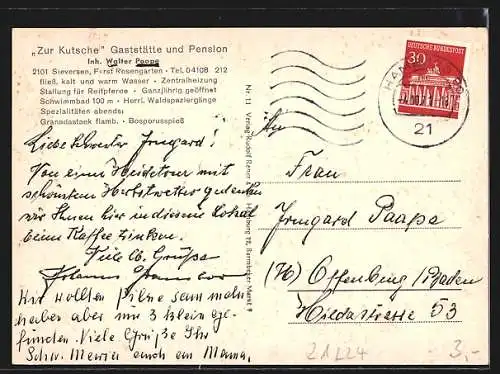 „Zur Kutsche" Gaststätte und Pension
Inh. Walter Paape
2101 Sieversen, Forst Rosengarten · Tel. 04108 212
fließ. kalt und warm Wasser · Zentralheizung
Stallung für Reitpferde · Ganzjährig geöffnet
Schwimmbad 100 m · Herrl. Waldspaziergänge
Spezialitäten abends:
Granadasteak flamb. · Bosporusspieß
Liebe Schwester Irmgard!
Von einer Heidetour mit
schönstem Herbstwetter gedenken
wir Ihnen hier in diesem Lokal
beim Kaffee trinken.
Viele lb. Grüße
Wir wollten Pilze
haber aber nur 3 klein ge-
funden. Viele Grüße Ihr
auch an Mama.
Nr. 11 Verlag Rudolf Hamburg Markt 9
DEUTSCHE BUNDESPOST
30
21
An
Frau
Irmgard Paape
Offenburg/Baden
Hildastrasse 53
21224
3,-